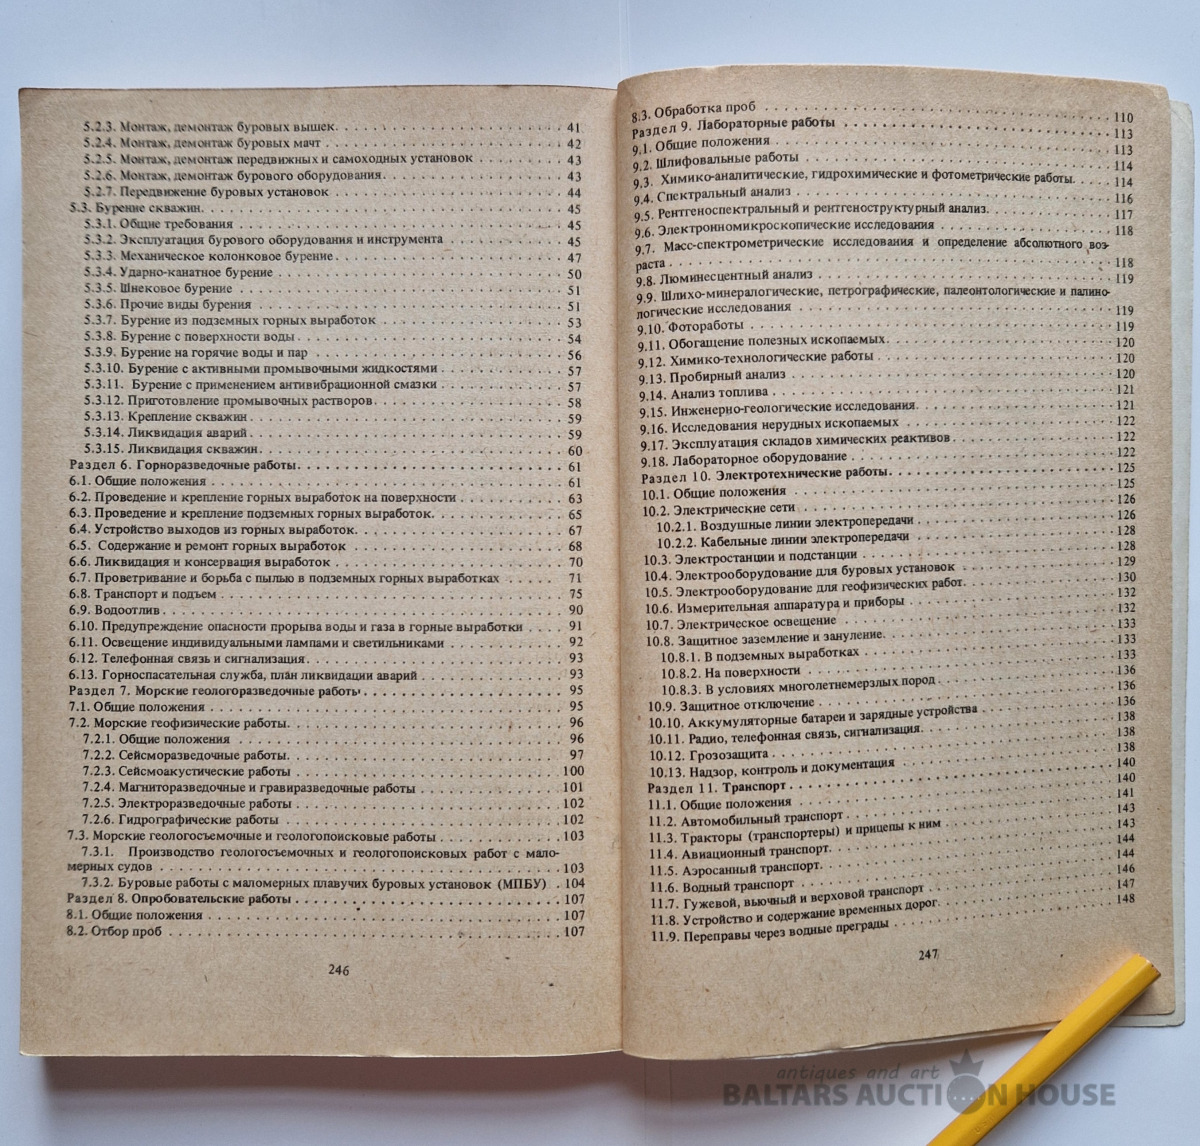 5.2.3. Монтаж, демонтаж буровых вышек. . . . . 41
5.2.4. Монтаж, демонтаж буровых мачт . . . . . 42
5.2.5. Монтаж, демонтаж передвижных и самоходных установок . . . . . 43
5.2.6. Монтаж, демонтаж бурового оборудования. . . . . 43
5.2.7. Передвижение буровых установок . . . . . 44
5.3. Бурение скважин. . . . . 45
5.3.1. Общие требования . . . . . 45
5.3.2. Эксплуатация бурового оборудования и инструмента . . . . . 45
5.3.3. Механическое колонковое бурение . . . . . 47
5.3.4. Ударно-канатное бурение . . . . . 50
5.3.5. Шнековое бурение . . . . . 51
5.3.6. Прочие виды бурения . . . . . 51
5.3.7. Бурение из подземных горных выработок . . . . . 53
5.3.8. Бурение с поверхности воды . . . . . 54
5.3.9. Бурение на горячие воды и пар . . . . . 56
5.3.10. Бурение с активными промывочными жидкостями . . . . . 57
5.3.11. Бурение с применением антивибрационной смазки . . . . . 57
5.3.12. Приготовление промывочных растворов . . . . . 58
5.3.13. Крепление скважин . . . . . 59
5.3.14. Ликвидация аварий . . . . . 59
5.3.15. Ликвидация скважин . . . . . 60
Раздел 6. Горноразведочные работы. . . . . 61
6.1. Общие положения . . . . . 61
6.2. Проведение и крепление горных выработок на поверхности . . . . . 63
6.3. Проведение и крепление подземных горных выработок. . . . . 65
6.4. Устройство выходов из горных выработок. . . . . 67
6.5. Содержание и ремонт горных выработок . . . . . 68
6.6. Ликвидация и консервация выработок . . . . . 70
6.7. Проветривание и борьба с пылью в подземных горных выработках . . . . . 71
6.8. Транспорт и подъем . . . . . 75
6.9. Водоотлив . . . . . 90
6.10. Предупреждение опасности прорыва воды и газа в горные выработки . . . . 91
6.11. Освещение индивидуальными лампами и светильниками . . . . . 92
6.12. Телефонная связь и сигнализация . . . . . 93
6.13. Горноспасательная служба, план ликвидации аварий . . . . . 93
Раздел 7. Морские геологоразведочные работы . . . . . 95
7.1. Общие положения . . . . . 95
7.2. Морские геофизические работы. . . . . 96
7.2.1. Общие положения . . . . . 96
7.2.2. Сейсморазведочные работы. . . . . 97
7.2.3. Сейсмоакустические работы . . . . . 100
7.2.4. Магниторазведочные и гравиразведочные работы . . . . . 101
7.2.5. Электроразведочные работы . . . . . 102
7.2.6. Гидрографические работы . . . . . 102
7.3. Морские геологосъемочные и геологопоисковые работы . . . . . 103
7.3.1. Производство геологосъемочных и геологопоисковых работ с мало-
мерных судов . . . . . 103
7.3.2. Буровые работы с маломерных плавучих буровых установок (МПБУ) . 104
Раздел 8. Опробовательские работы . . . . . 107
8.1. Общие положения . . . . . 107
8.2. Отбор проб . . . . . 107
246
8.3. Обработка проб . . . . . 110
Раздел 9. Лабораторные работы . . . . . 113
9.1. Общие положения . . . . . 113
9.2. Шлифовальные работы . . . . . 114
9.3. Химико-аналитические, гидрохимические и фотометрические работы. . . . . 114
9.4. Спектральный анализ . . . . . 116
9.5. Рентгеноспектральный и рентгеноструктурный анализ. . . . . 117
9.6. Электронномикроскопические исследования . . . . . 118
9.7. Масс-спектрометрические исследования и определение абсолютного воз-
раста . . . . . 118
9.8. Люминесцентный анализ . . . . . 119
9.9. Шлихо-минералогические, петрографические, палеонтологические и палино-
логические исследования . . . . . 119
9.10. Фотоработы . . . . . 119
9.11. Обогащение полезных ископаемых. . . . . 120
9.12. Химико-технологические работы . . . . . 120
9.13. Пробирный анализ . . . . . 120
9.14. Анализ топлива . . . . . 121
9.15. Инженерно-геологические исследования. . . . . 121
9.16. Исследования нерудных ископаемых . . . . . 122
9.17. Эксплуатация складов химических реактивов . . . . . 122
9.18. Лабораторное оборудование . . . . . 122
Раздел 10. Электротехнические работы. . . . . 125
10.1. Общие положения . . . . . 125
10.2. Электрические сети . . . . . 126
10.2.1. Воздушные линии электропередачи . . . . . 126
10.2.2. Кабельные линии электропередачи . . . . . 128
10.3. Электростанции и подстанции . . . . . 128
10.4. Электрооборудование для буровых установок . . . . . 129
10.5. Электрооборудование для геофизических работ. . . . . 130
10.6. Измерительная аппаратура и приборы . . . . . 132
10.7. Электрическое освещение . . . . . 132
10.8. Защитное заземление и зануление. . . . . 133
10.8.1. В подземных выработках . . . . . 133
10.8.2. На поверхности . . . . . 133
10.8.3. В условиях многолетнемерзлых пород . . . . . 136
10.9. Защитное отключение . . . . . 136
10.10. Аккумуляторные батареи и зарядные устройства . . . . . 136
10.11. Радио, телефонная связь, сигнализация. . . . . 138
10.12. Грозозащита . . . . . 138
10.13. Надзор, контроль и документация . . . . . 138
Раздел 11. Транспорт . . . . . 140
11.1. Общие положения . . . . . 140
11.2. Автомобильный транспорт . . . . . 141
11.3. Тракторы (транспортеры) и прицепы к ним . . . . . 143
11.4. Авиационный транспорт. . . . . 143
11.5. Аэросанный транспорт. . . . . 144
11.6. Водный транспорт . . . . . 144
11.7. Гужевой, вьючный и верховой транспорт . . . . . 146
11.8. Устройство и содержание временных дорог. . . . . 147
11.9. Переправы через водные преграды . . . . . 148
247
antiques and art
BALTARS AUCTION HOUSE